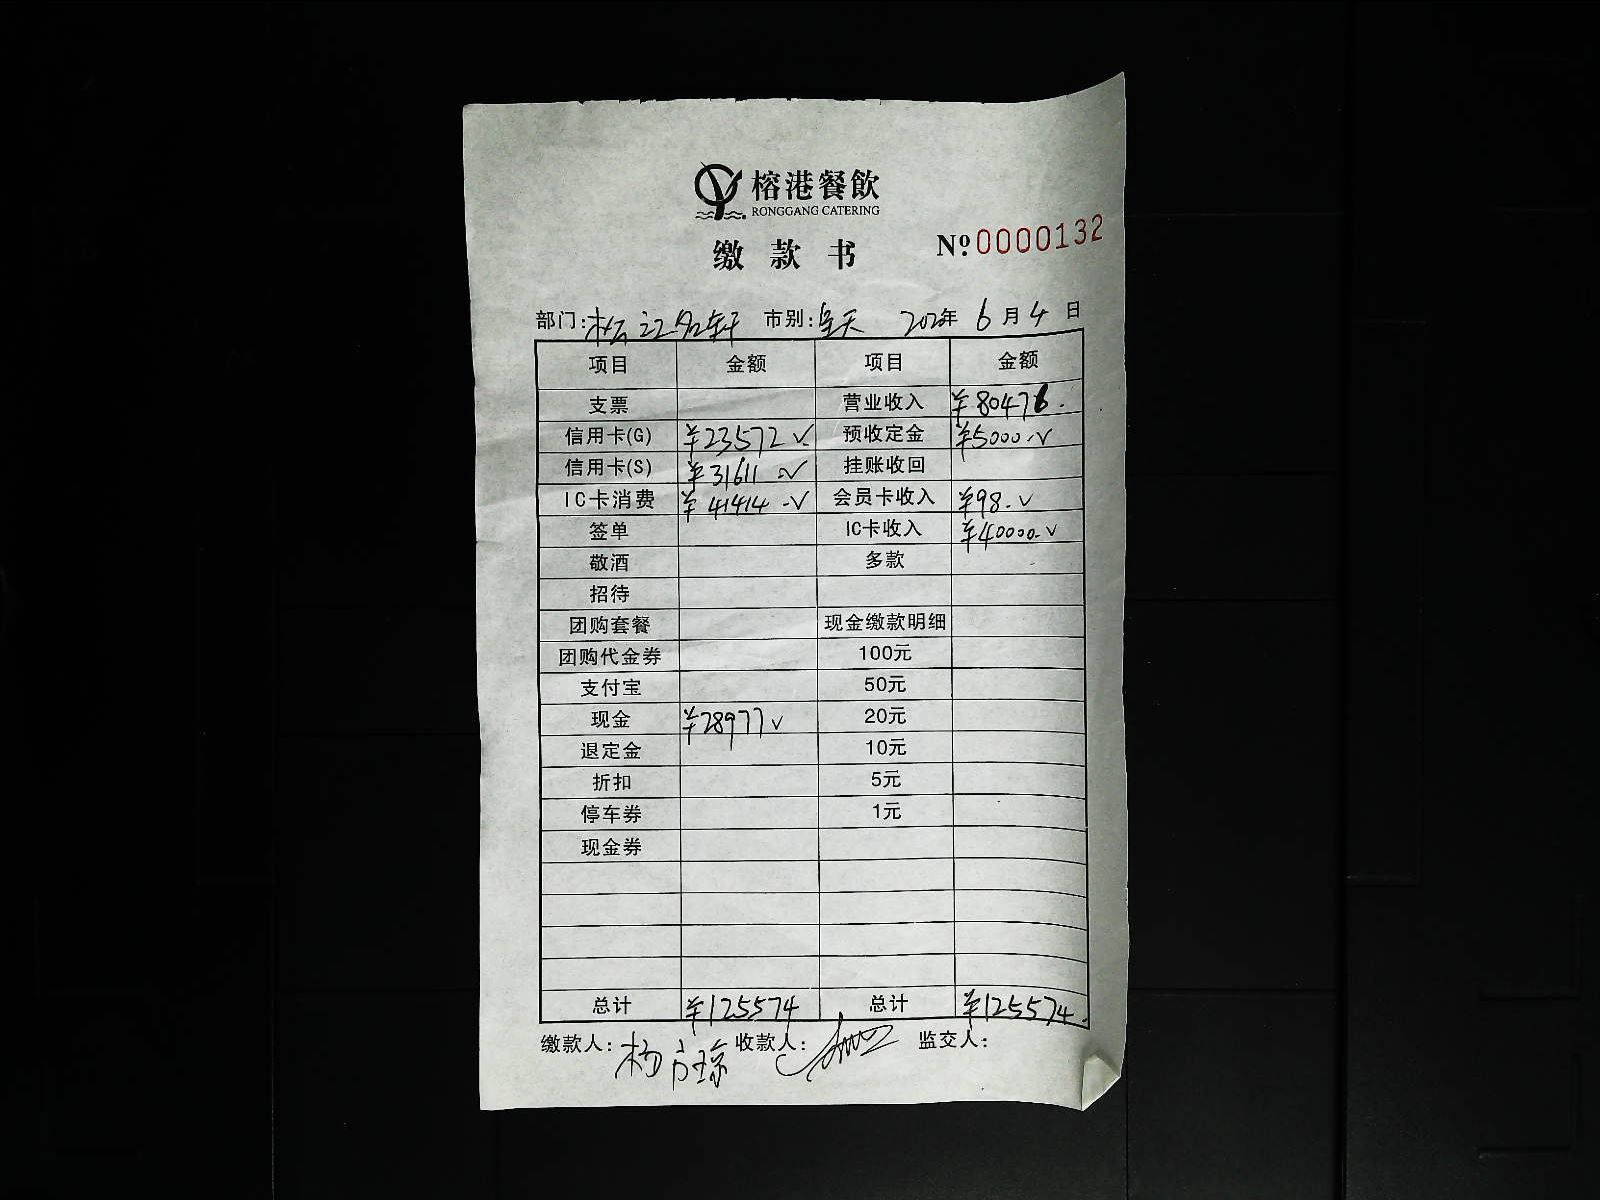 榕港餐飲
RONGGANG CATERING
缴款书
№0000132
部门: 松江名轩 市别: 全天 2020年 6月4日
项目 金额 项目 金额
支票 营业收入 ¥80476.
信用卡(G) ¥23572 √ 预收定金 ¥5000.√
信用卡(S) ¥31611 √ 挂账收回
IC卡消费 ¥41414 -√ 会员卡收入 ¥98.√
签单 IC卡收入 ¥40000.√
敬酒 多款
招待
团购套餐 现金缴款明细
团购代金券 100元
支付宝 50元
现金 ¥28977 √ 20元
退定金 10元
折扣 5元
停车券 1元
现金券
总计 ¥125574 总计 ¥125574.
缴款人: 杨 收款人: 监交人: